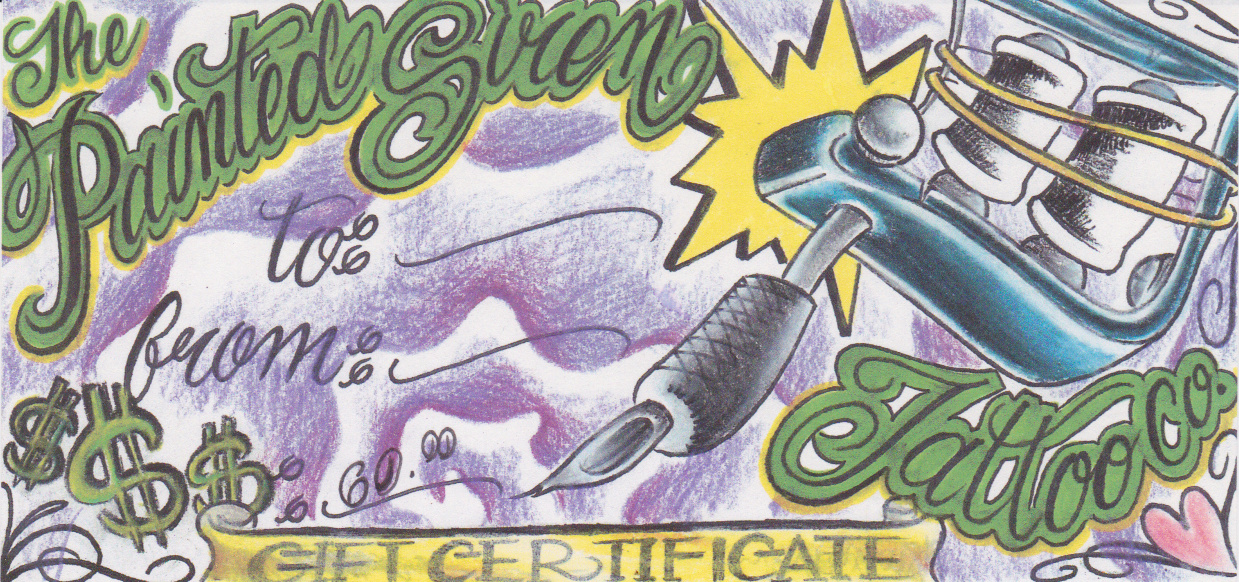 The
Painted Siren
to:
from:
$$$: 60.00
Tattoo Co.
GIFT CERTIFICATE